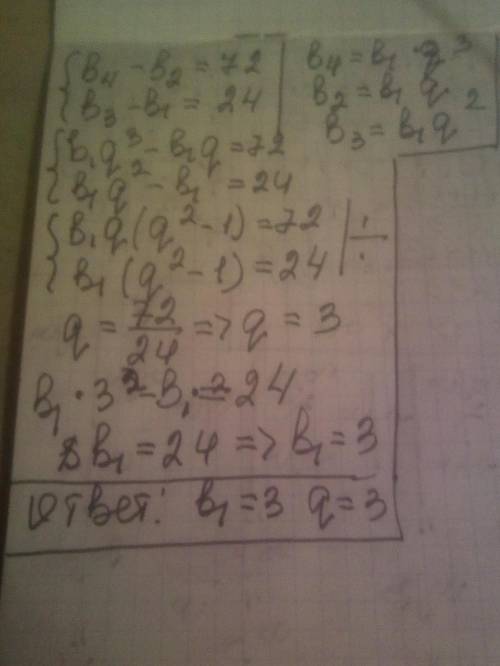 { b₄ - b₂ = 72
{ b₃ - b₁ = 24
b₄ = b₁ q³
b₂ = b₁ q
b₃ = b₁ q²
{ b₁q³ - b₁q = 72
{ b₁q² - b₁ = 24
{ b₁q (q² - 1) = 72 | ÷
{ b₁ (q² - 1) = 24
q = 72/24 => q = 3
b₁ · 3² - b₁ = 24
8 b₁ = 24 => b₁ = 3
Ответ: b₁ = 3 q = 3